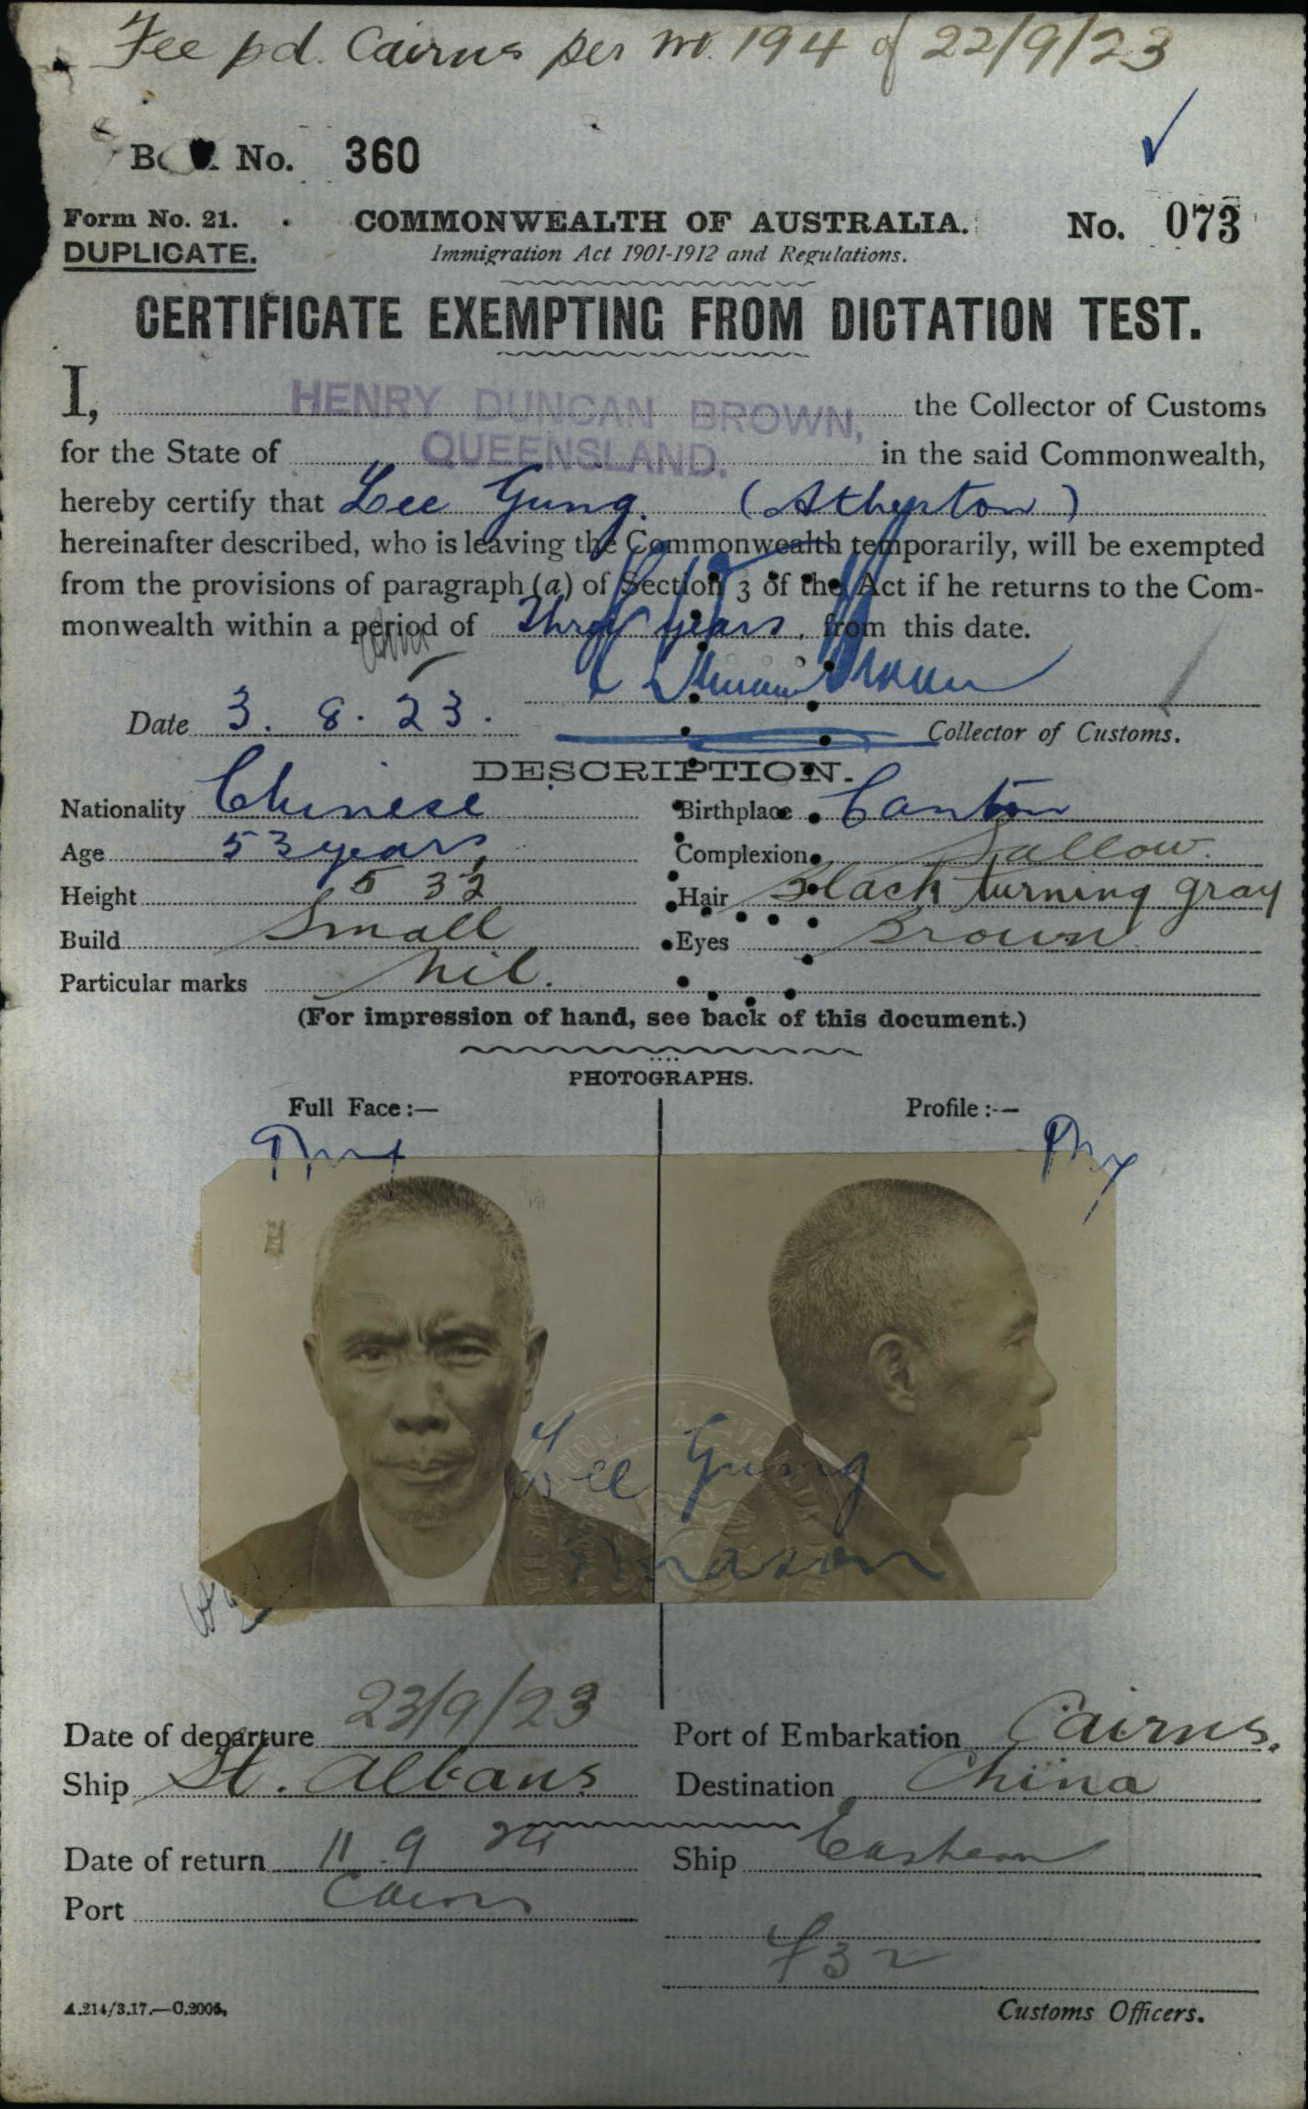 Fee pd. Cairns per No. 194 of 22/9/23
No. 360
Form No. 21. COMMONWEALTH OF AUSTRALIA. No. 073
DUPLICATE. Immigration Act 1901-1912 and Regulations.
CERTIFICATE EXEMPTING FROM DICTATION TEST.
I, HENRY DUNCAN BROWN, the Collector of Customs
for the State of QUEENSLAND. in the said Commonwealth,
hereby certify that Lee Gung. (Atherton)
hereinafter described, who is leaving the Commonwealth temporarily, will be exempted
from the provisions of paragraph (a) of Section 3 of the Act if he returns to the Com-
monwealth within a period of Three years, from this date.
Date 3. 8. 23. Collector of Customs.
DESCRIPTION.
Nationality Chinese Birthplace Canton
Age 53 years Complexion Sallow.
Height 5 3½ Hair Black turning gray
Build Small Eyes Brown
Particular marks nil.
(For impression of hand, see back of this document.)
PHOTOGRAPHS.
Full Face:— Profile:—
Lee Gung
Date of departure 23/9/23 Port of Embarkation Cairns.
Ship St. Albans Destination China
Date of return 11 9 24 Ship Eastern
Port Cairns
432
A.214/3.17.—C.2005. Customs Officers.